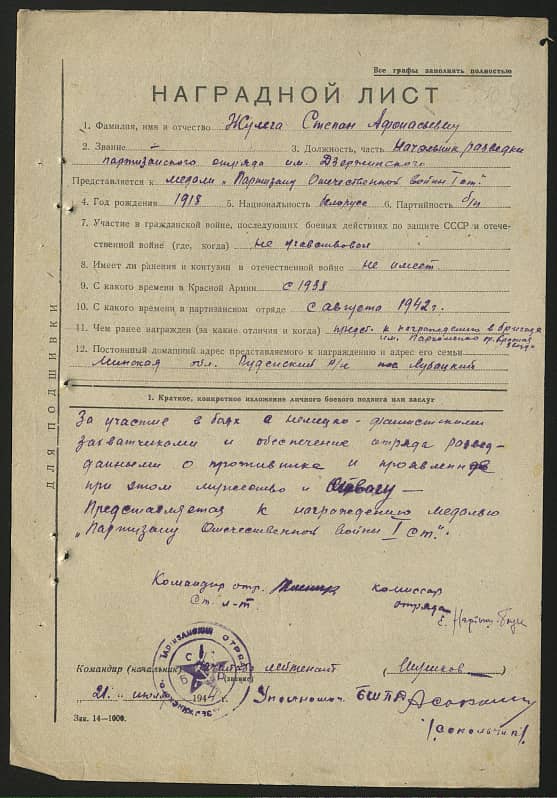 Все графы заполнять полностью
НАГРАДНОЙ ЛИСТ
1. Фамилия, имя и отчество Жулега Степан Афонасьевич
2. Звание - 3. Должность, часть Начальник разведки
партизанского отряда им. Дзержинского
Представляется к медали „Партизану Отечественной войны I ст."
4. Год рождения 1918 5. Национальность белорус 6. Партийность б/п
7. Участие в гражданской войне, последующих боевых действиях по защите СССР и отече-
ственной войне (где, когда) не участвовал
8. Имеет ли ранения и контузии в отечественной войне не имеет
9. С какого времени в Красной Армии с 1938
10. С какого времени в партизанском отряде с августа 1942 г.
11. Чем ранее награжден (за какие отличия и когда) предст. к награждению в бригаде
им. Пархоменко
12. Постоянный домашний адрес представляемого к награждению и адрес его семьи
Минская обл. Руденский р/н
ДЛЯ ПОДШИВКИ
1. Краткое, конкретное изложение личного боевого подвига или заслуг
За участие в боях с немецко-фашистскими
захватчиками и обеспечение отряда развед-
данными о противнике и проявленное
при этом мужество и отвагу —
Представляется к награждению медалью
„Партизану Отечественной войны I ст."
Командир отр. комиссар
ст. л-т. отряда
ПАРТИЗАНСКИЙ ОТРЯД
Командир (начальник) лейтенант
(звание)
„21" июля 1944 г. Уполномоч. БШПД
Зак. 14—1000.